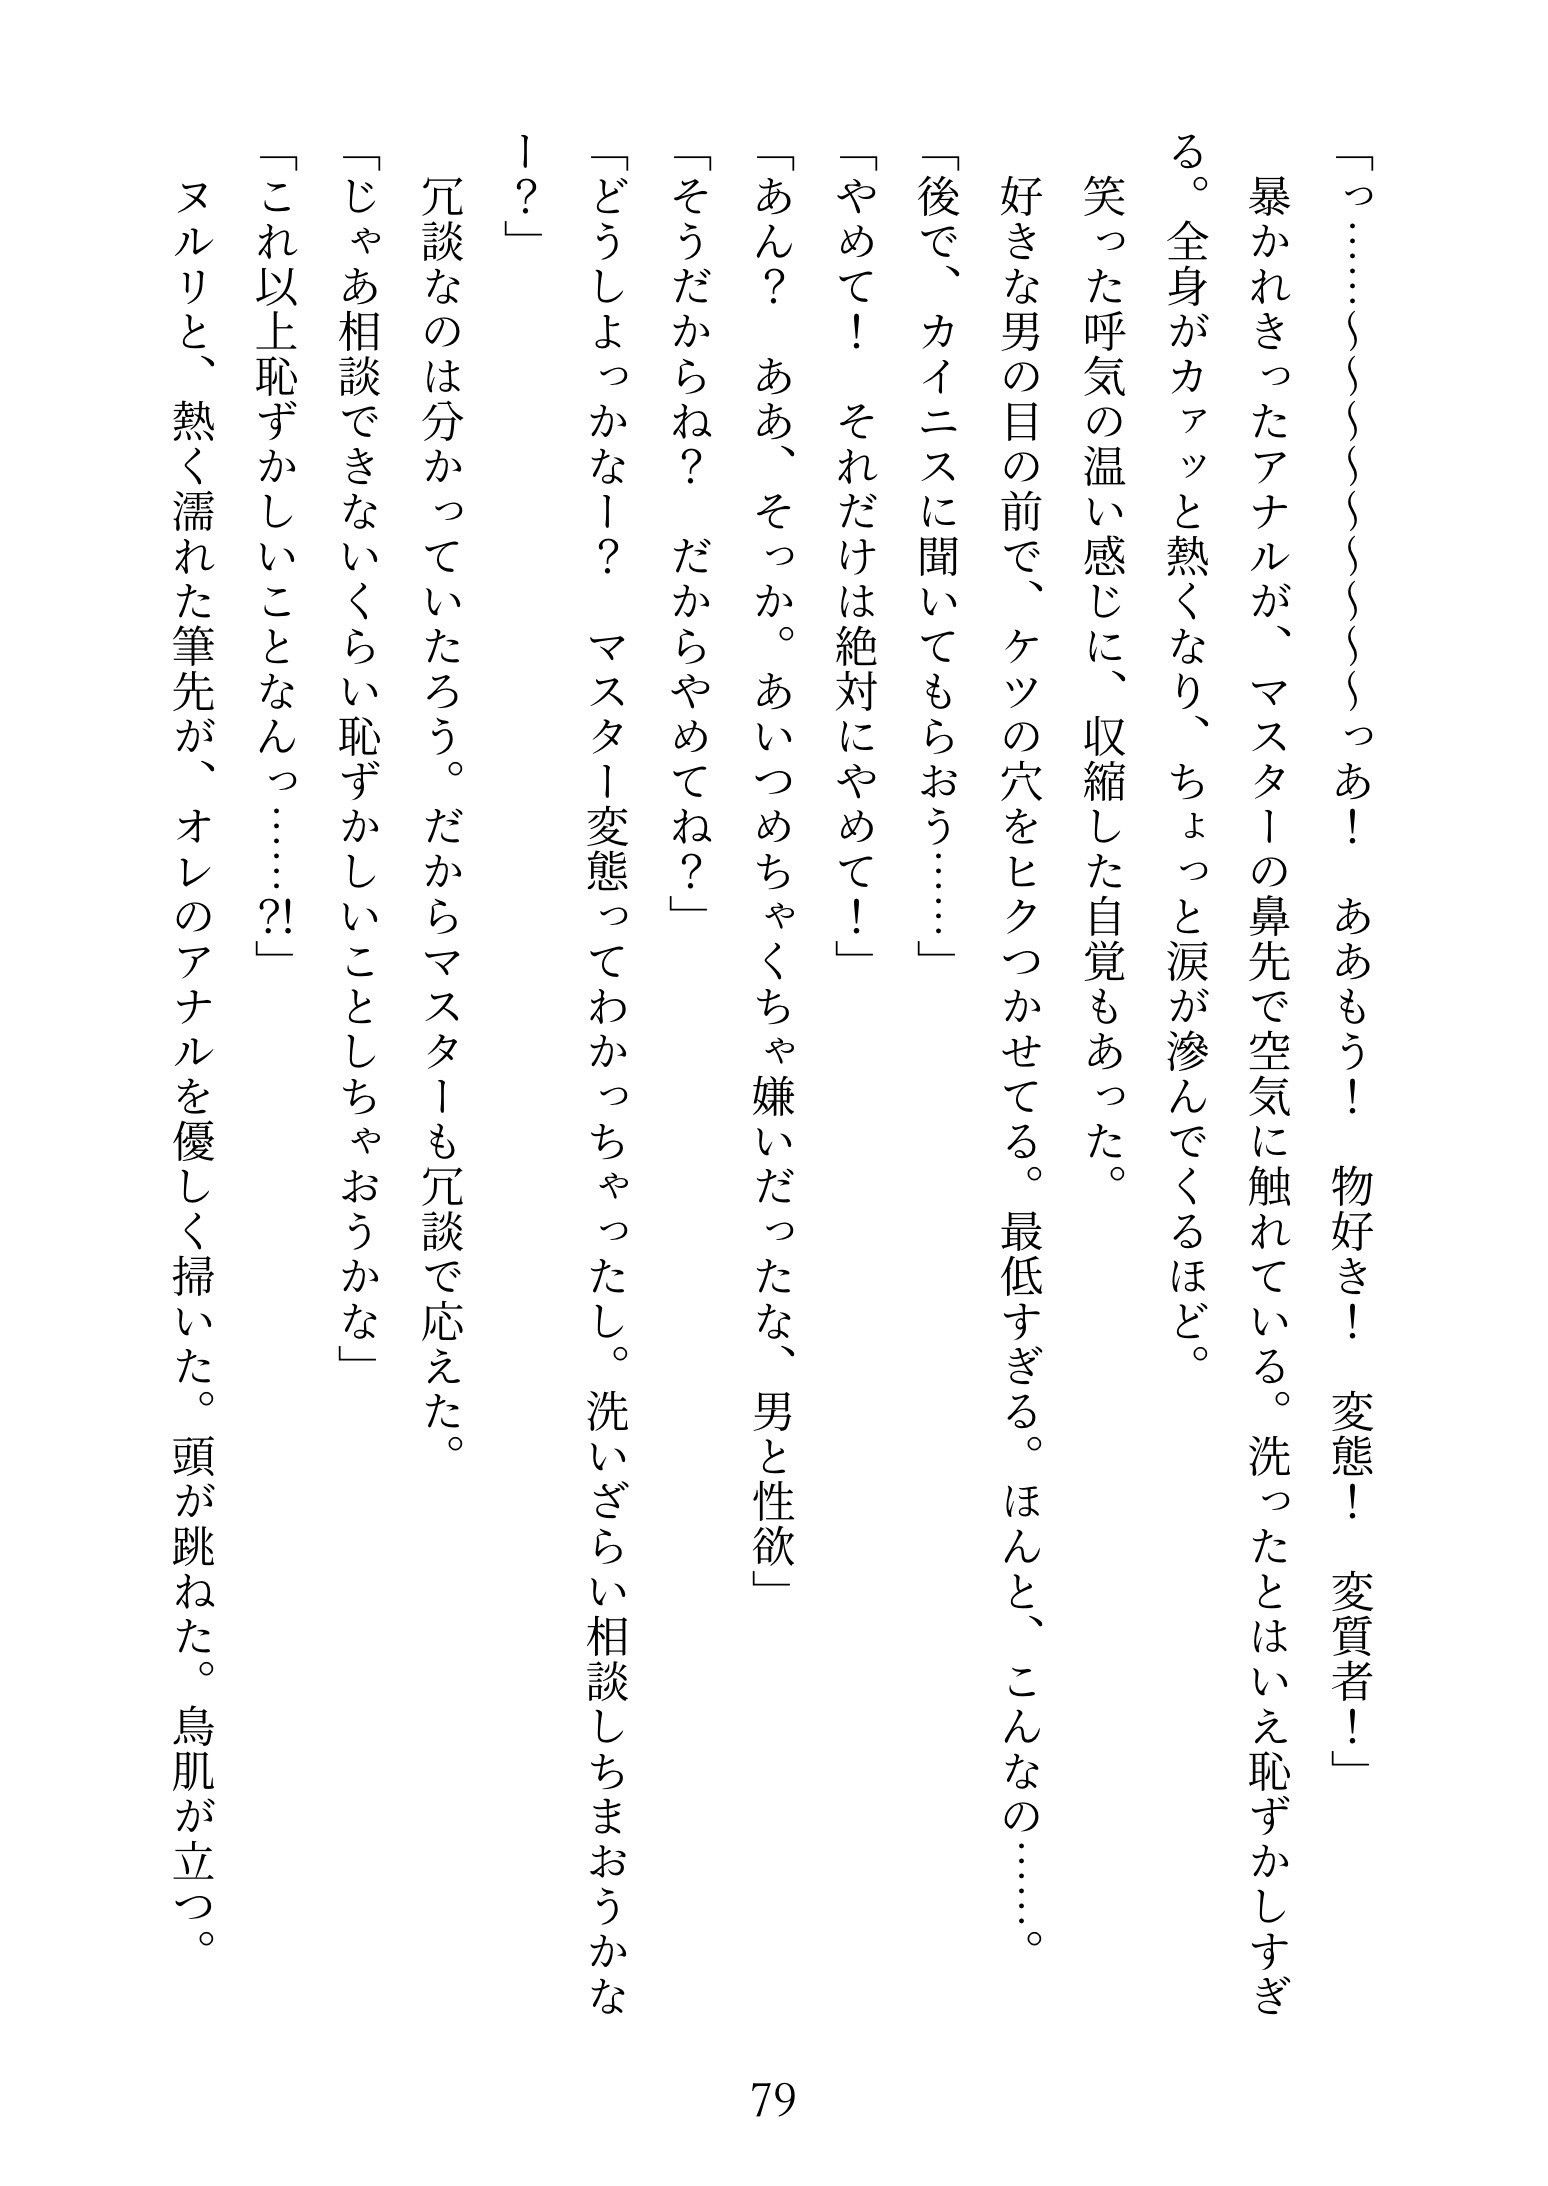 「っ……～～～～～～～～～っあ！　ああもう！　物好き！　変態！　変質者！」
　暴かれきったアナルが、マスターの鼻先で空気に触れている。洗ったとはいえ恥ずかしすぎ
る。全身がカァッと熱くなり、ちょっと涙が滲んでくるほど。
　笑った呼気の温い感じに、収縮した自覚もあった。
　好きな男の目の前で、ケツの穴をヒクつかせてる。最低すぎる。ほんと、こんなの……。
「後で、カイニスに聞いてもらおう……」
「やめて！　それだけは絶対にやめて！」
「あん？　ああ、そっか。あいつめちゃくちゃ嫌いだったな、男と性欲」
「そうだからね？　だからやめてね？」
「どうしよっかなー？　マスター変態ってわかっちゃったし。洗いざらい相談しちまおうかな
ー？」
　冗談なのは分かっていたろう。だからマスターも冗談で応えた。
「じゃあ相談できないくらい恥ずかしいことしちゃおうかな」
「これ以上恥ずかしいことなんっ……?!」
　ヌルリと、熱く濡れた筆先が、オレのアナルを優しく掃いた。頭が跳ねた。鳥肌が立つ。
79